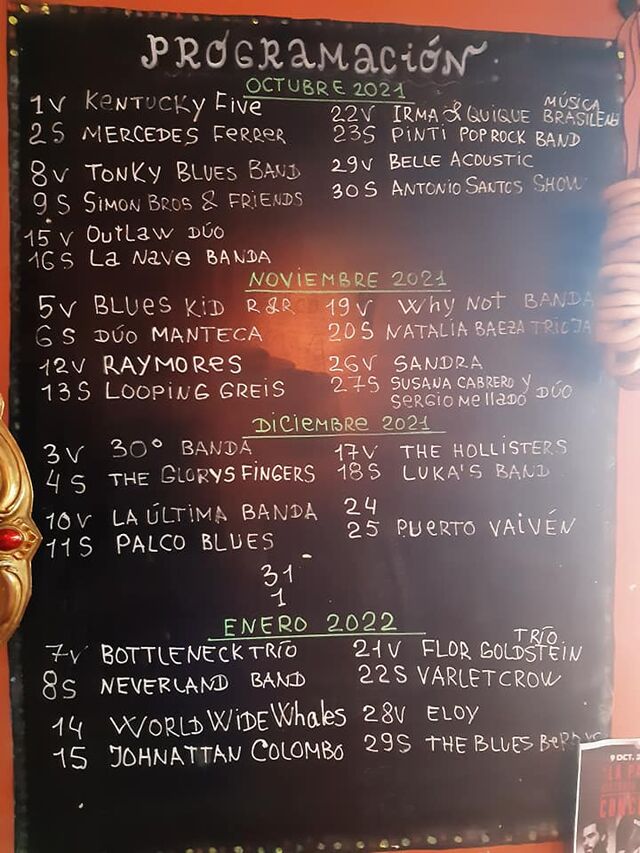 PROGRAMACIÓN
OCTUBRE 2021
1V KENTUCKY FIVE
2S MERCEDES FERRER
8V TONKY BLUES BAND
9S SIMON BROS & FRIENDS
15V OUTLAW DÚO
16S LA NAVE BANDA
22V IRMA & QUIQUE MÚSICA
BRASILEÑA
23S PINTI POPROCK BAND
29V BELLE ACOUSTIC
30S ANTONIO SANTOS SHOW
NOVIEMBRE 2021
5V BLUES KID R&R
6S DÚO MANTECA
12V RAYMORES
13S LOOPING GREIS
19V WHY NOT BANDA
20S NATALIA BAEZA TRIO
26V SANDRA
27S SUSANA CABRERO Y
SERGIO MELLADO DÚO
DICIEMBRE 2021
3V 30° BANDA
4S THE GLORYS FINGERS
10V LA ÚLTIMA BANDA
11S PALCO BLUES
17V THE HOLLISTERS
18S LUKA'S BAND
24
25 PUERTO VAIVÉN
31
1
ENERO 2022
7V BOTTLENECK TRÍO
8S NEVERLAND BAND
14 WORLD WIDE WHALES
15 JOHNATTAN COLOMBO
21V FLOR GOLDSTEIN TRÍO
22S VARLETCROW
28V ELOY
29S THE BLUES
9 OCT.